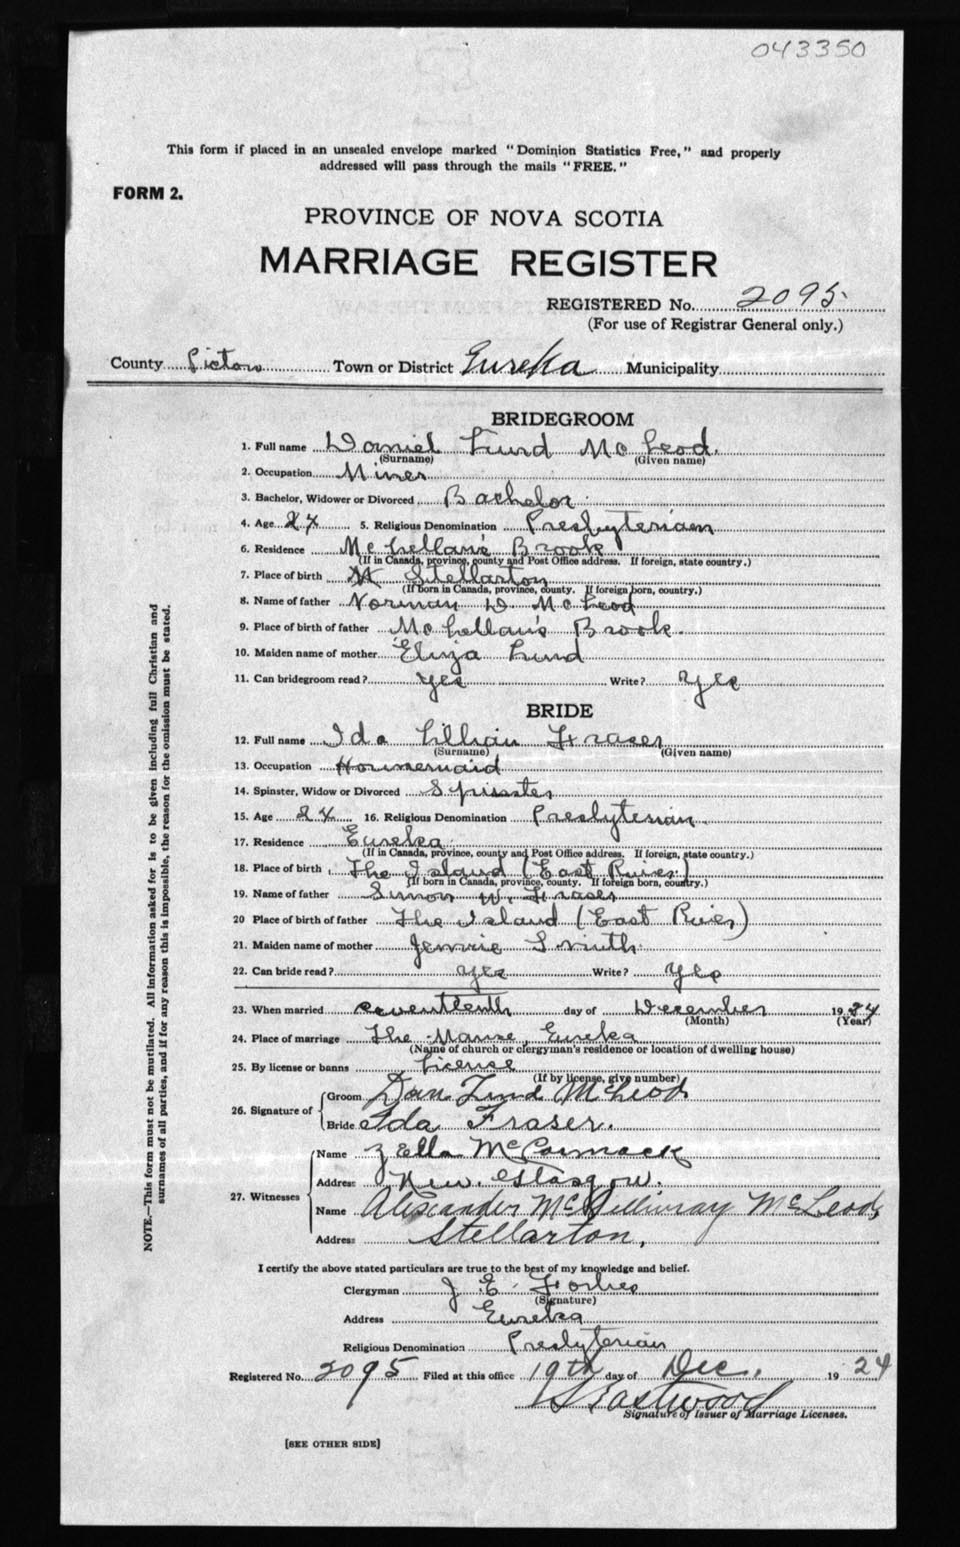 043350
This form if placed in an unsealed envelope marked "Dominion Statistics Free," and properly
addressed will pass through the mails "FREE."
FORM 2.
PROVINCE OF NOVA SCOTIA
MARRIAGE REGISTER
REGISTERED No. 2095
(For use of Registrar General only.)
County Pictou Town or District Eureka Municipality
BRIDEGROOM
1. Full name Daniel Lund McLeod.
(Surname) (Given name)
2. Occupation Miner
3. Bachelor, Widower or Divorced Bachelor
4. Age 24 5. Religious Denomination Presbyterian
6. Residence McLellan's Brook
(If in Canada, province, county and Post Office address. If foreign, state country.)
7. Place of birth Stellarton
(If born in Canada, province, county. If foreign born, country.)
8. Name of father Norman D McLeod
9. Place of birth of father McLellan's Brook.
10. Maiden name of mother Eliza Lund
11. Can bridegroom read? yes Write? yes
BRIDE
12. Full name Ida Lillian Fraser
(Surname) (Given name)
13. Occupation Housemaid
14. Spinster, Widow or Divorced Spinster
15. Age 24 16. Religious Denomination Presbyterian
17. Residence Eureka
(If in Canada, province, county and Post Office address. If foreign, state country.)
18. Place of birth The Island (East River)
(If born in Canada, province, county. If foreign born, country.)
19. Name of father Simon W. Fraser
20 Place of birth of father The Island (East River)
21. Maiden name of mother Jennie Smith
22. Can bride read? yes Write? yes
23. When married seventeenth day of December 1924
(Month) (Year)
24. Place of marriage The Manse, Eureka
(Name of church or clergyman's residence or location of dwelling house)
25. By license or banns License
(If by license, give number)
26. Signature of
Groom Dan Lund McLeod
Bride Ida Fraser.
27. Witnesses
Name Zella McCormack
Address New Glasgow.
Name Alexander McGillivray McLeod,
Address Stellarton,
I certify the above stated particulars are true to the best of my knowledge and belief.
Clergyman J E Forbes
(Signature)
Address Eureka
Religious Denomination Presbyterian
Registered No. 2095 Filed at this office 19th day of Dec. 1924
Eastwood
Signature of Issuer of Marriage Licenses.
[SEE OTHER SIDE]
NOTE.—This form must not be mutilated. All information asked for is to be given including full Christian and
surnames of all parties, and if for any reason this is impossible, the reason for the omission must be stated.